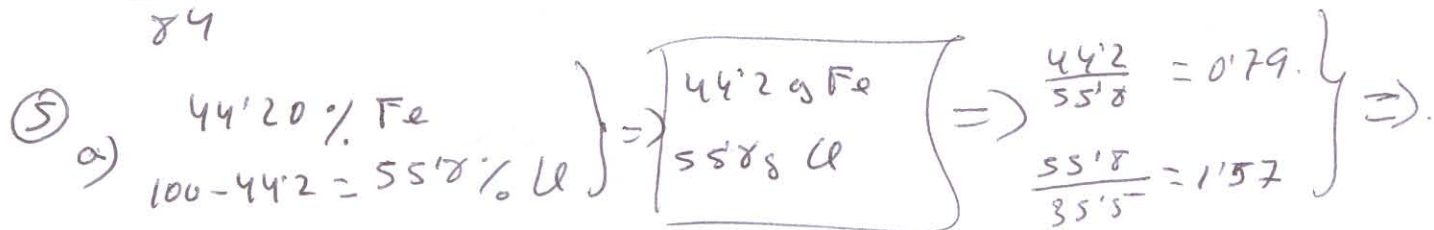 84
⑤ a) 44'20 % Fe
100-44'2 = 55'8 % Cl } => 44'2 g Fe
55'8 g Cl => 44'2/55'8 = 0'79.
55'8/35'5 = 1'57 } =>.